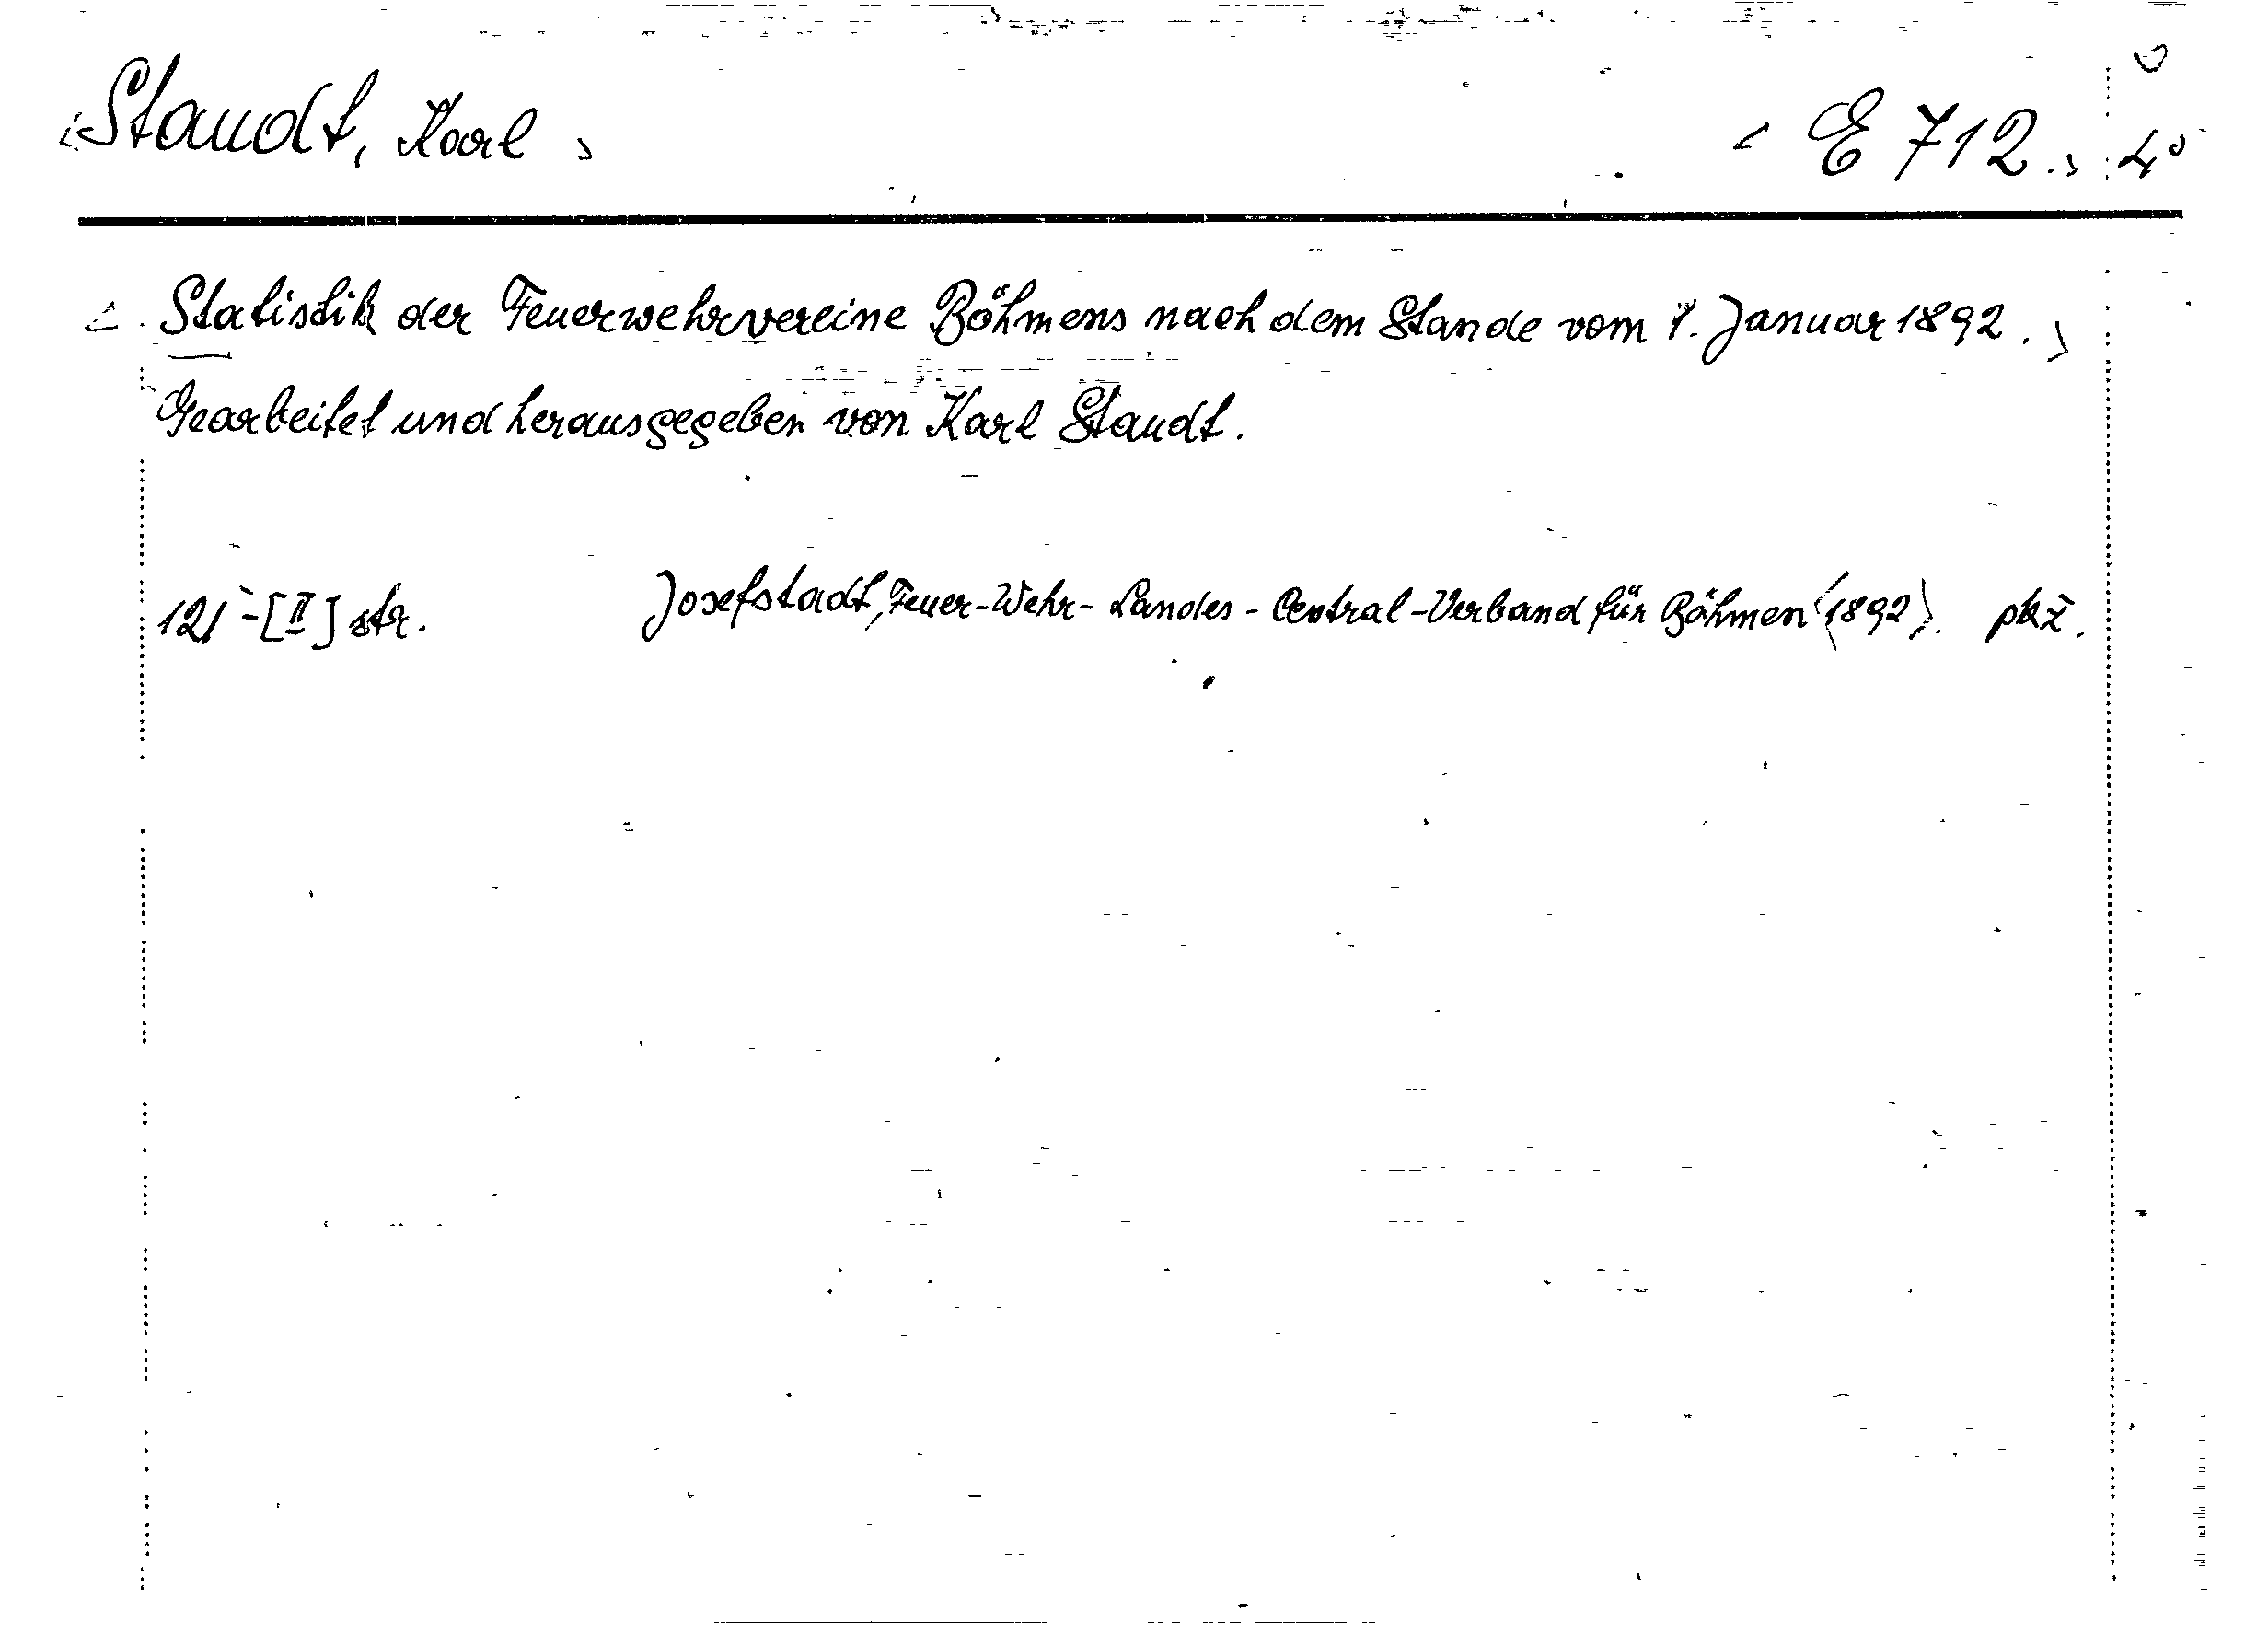 Staudt, Karl
E 712. 4°
Statistik der Feuerwehrvereine Böhmens nach dem Stande vom 1. Januar 1892.
Gearbeitet und herausgegeben von Karl Staudt.
121-[II] str. Josefstadt, Feuer-Wehr-Landes-Central-Verband für Böhmen (1892).